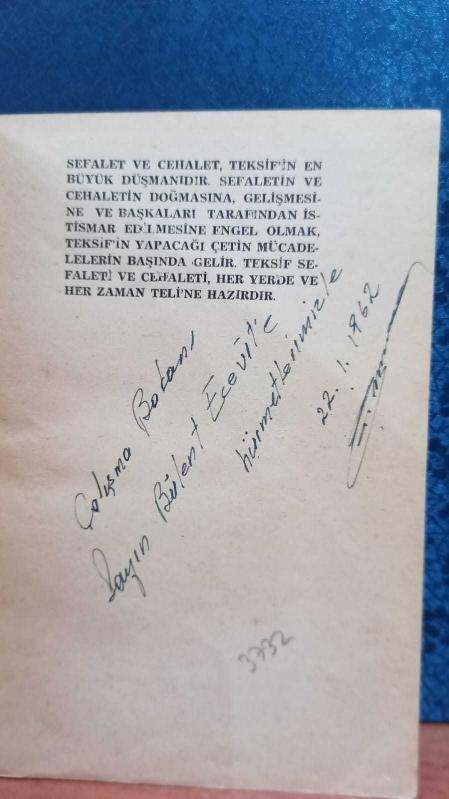 SEFALET VE CEHALET, TEKSİF'İN EN
BÜYÜK DÜŞMANIDIR. SEFALETİN VE
CEHALETİN DOĞMASINA, GELİŞMESİ-
NE VE BAŞKALARI TARAFINDAN İS-
TİSMAR EDİLMESİNE ENGEL OLMAK,
TEKSİF'İN YAPACAĞI ÇETİN MÜCADE-
LELERİN BAŞINDA GELİR. TEKSİF SE-
FALETİ VE CEHALETİ, HER YERDE VE
HER ZAMAN TELİ'NE HAZIRDIR.
Çalışma Bakanı
Sayın Bülent Ecevit'e
hürmetlerimizle
22.1.1962
3732